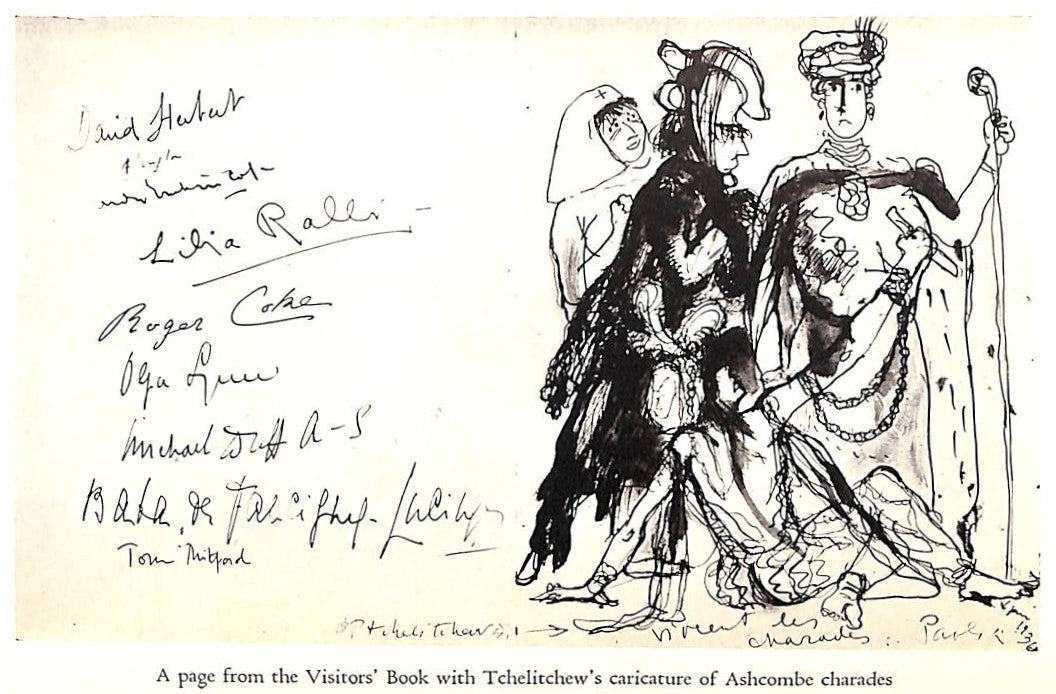 David Herbert
Lilia Ralli
Roger Coke
Olga Lynn
Michael Duff A-S
Baba de Faucigny-Lucinge
Tom Mitford
P Tchelitchew
vivent les
charades
A page from the Visitors' Book with Tchelitchew's caricature of Ashcombe charades